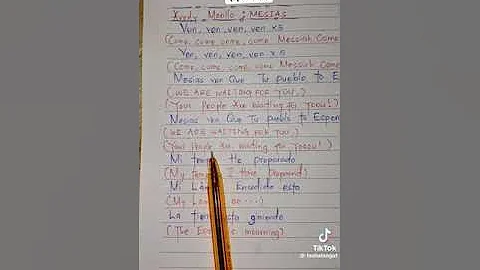 Xuxdy Morillo ; MESIAS
Ven, ven, ven, ven x5
(Come, come, come, come Messiah Come
Ven, ven, ven, ven x5
(Come, come, come, come Messiah Come
Mesias ven Que Tu pueblo te Es
(WE ARE WAITING FOR YOU.)
(Your People Are waiting for Yoou!)
Mesias ven Que Tu pueblo te Esper
(WE ARE WAITING FOR YOU.)
(Your People Are waiting for Yoou!)
Mi He preparado
(My I have prepared)
Mi Lám Encedida esta
(My La
La tier esta gimiendo
(The Ea is mourning)
TikTok